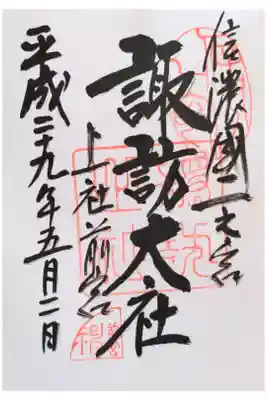 信濃國一之宮
諏訪大社
上社前宮
平成二十九年五月二日